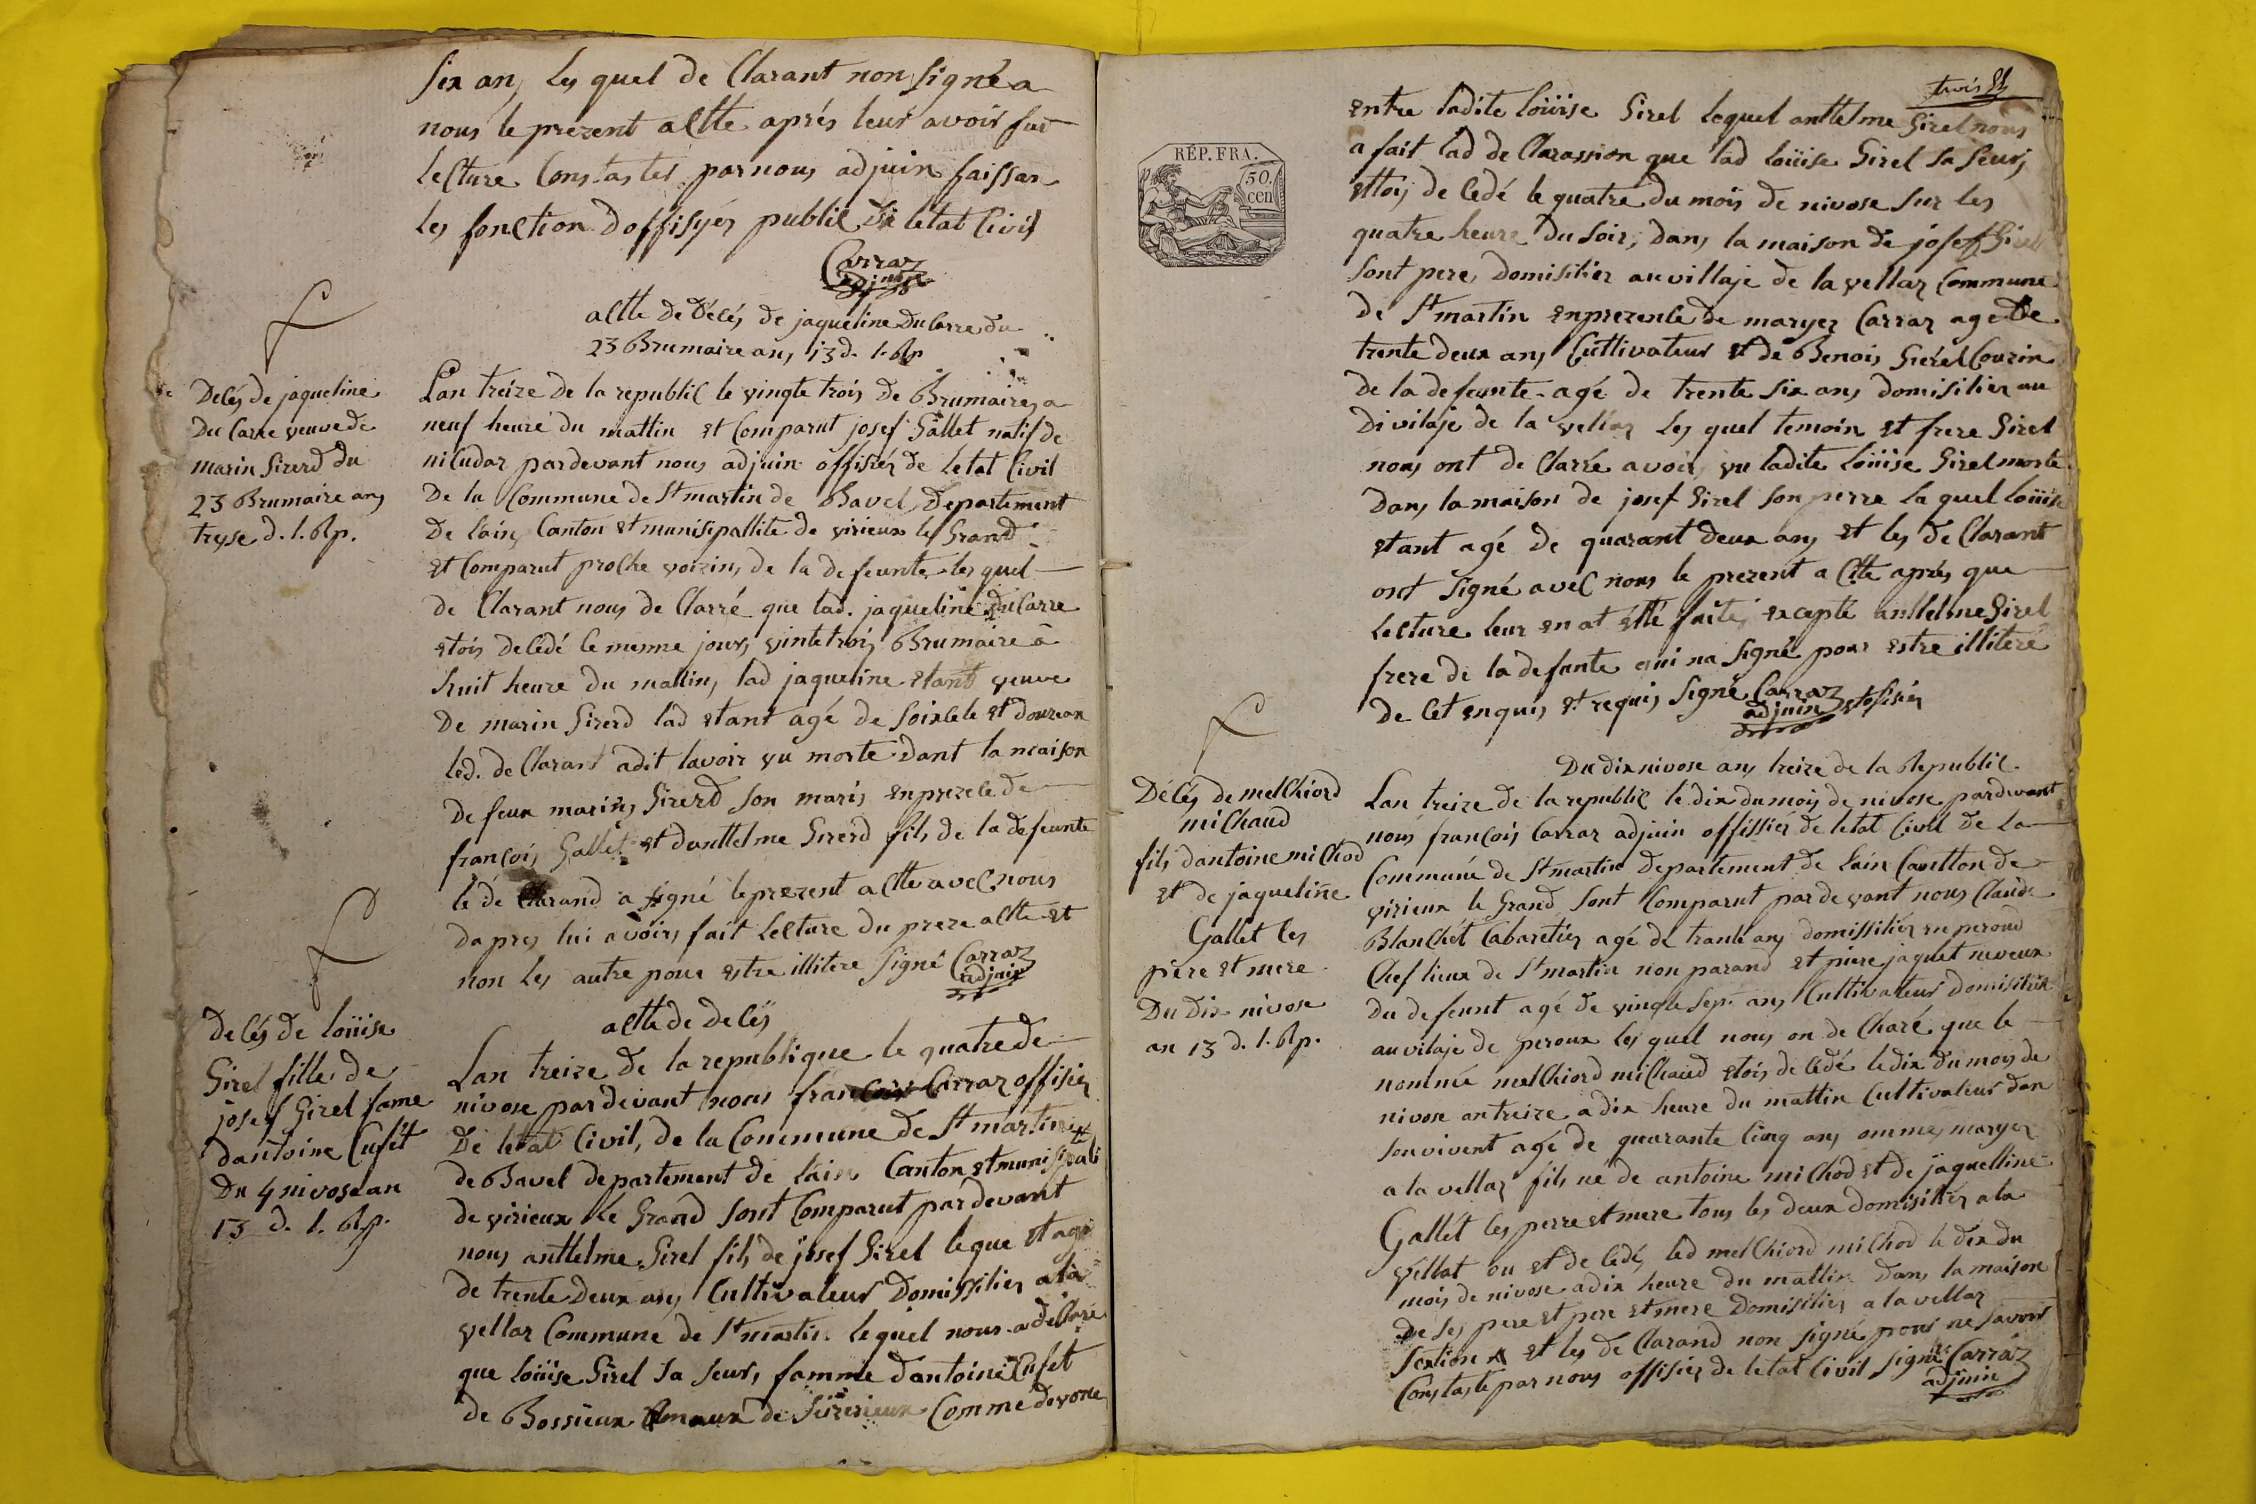 six an, les quel de Clarant non signé a
nous le prezent actte aprés leur avoir fait
lecture Constastes par nous adjuin faissan
les fonction d offisyér public de letat Civil
Carraz
adjuin
actte de décés de jaqueline du Carre du
23 Brumaire an, 13 d. l. Rp
Décés de jaqueline
du Carre veuve de
marin Sirerd du
23 Brumaire an,
treyse d. l. Rp.
Lan treize de la republic le vingte trois de Brumaires a
neuf heure du mattin et Comparut josef Gallet natif de
niCudar pardevant nous adjuin offisiér de letat Civil
De la Commune de St martin de Bavel, Departement
De lain, Canton et munisipallite de virieux le Grand
et Comparut proche voizin, de la defeunte, les quel
de Clarant nous de Clarré que lad. jaqueline du Carre
etois decedé le mesme jour, vinte trois Brumaire a
huit heure du mattin, lad jaqueline etant veuve
De marin Sirerd lad etant agé de soixcete et douzean
led. de Clarant adit lavoir vu morte dant la maison
de feux marin, Sirerd son maris en prezece de
françois Gallet et d anttelme Sirerd fils de la defeunte
le dé Clarand a signé le prezent actte avec nous
dapres lui avoirs fait lecture du preze actte et
non les autre pour estre illitere signé Carraz
adjuin
actte de decéy
decés de loüise
Girel fille de
josef Girel fame
dantoine Cufét
du 4 nivose an
13 d. l. Rp.
Lan treize de la republique le quatre de
nivose par devant nous françois Carraz offisier
De letat Civil, de la Commune de St martin
de Bavel departement de lain Canton et munisipali
de virieux le Grand sont Comparut par devant
nous anttelme Girel fils de josef Girel leque et agé
de trente deux an, Cultivateur Domissilier a la
vellaz Commune de St martin lequel nous a déClaré
que loüise Girel sa seur, famme d antoine Cufet
de Bossieux
trois
entre ladite loüise Girel lequel anttelme Girel nous
a fait lad de Clarassion que lad loüise Girel sa seur,
ettois de cedé le quatre du mois de nivose sur les
quatre heure du soir, dans la maison de josef Girel
sont pere, Domisilier au villaje de la vellaz Commune
de St martin en prezence de maryez Carraz age de
trente deux an, Cultivateur et de Benois Girel Couzin
de la defeunte agé de trente six an, domisilier au
di vilaje de la vellaz les quel temoin et frere Girel
nous ont de Clarré avoir, vu ladite loüise Girel morte
dans la maison de josef Girel son perre la quel loüise
etant agé de quarant deux an, et les de Clarant
ont signé avec nous le prezent a Ctte aprés que
lecture leur en at étté faite, excepté anttelme Girel
frere de la defunte qui na signé pour estre illiteré
de cet enquis et requis signé Carraz et ofisier
adjuin
RÉP. FRA.
50.
cen
Du dix nivose an, treize de la Republic.
Décés de melChiord
miChaud
fils dantoine michod
et de jaqueline
Gallet les
piere et mere
Du dix nivose
an 13 d. l. Rp.
Lan treize de la republic le dix du mois de nivose pardevant
nous françois Carraz adjuin offissier de letat Civil de la
Commune de St martin departement de lain Cantton de
virieux le Grand sont Comparut par devant nous Claude
Blanchét Cabaretier agé de trante an, domissilier en peroud
Chef lieux de St martin non parand et piere jaquet neveux
du defeunt agé de vingte sept an, Cultivateur domisilier
au vilaje de peroux les quel nous on de Claré que le
nommé melChiord miChaud etois de cedé le dix du mois de
nivose an treize a dix heure du mattin Cultivateur dan
son vivent agé de quarante cinq an, omme, maryer
a la vellaz fils né de antoine miChod et de jaquelline
Gallét les perre et mere tous les deux domisiliés a la
vellat ou et de cedé, led melChiord miChod le dix du
mois de nivose a dix heure du mattin dans la maison
de ses pere et pere et mere Domisilier a la vellaz
section A et les de Clarand non signé pour ne savoir
Constaste par nous offisier de letat Civil signé Carraz
adjuin